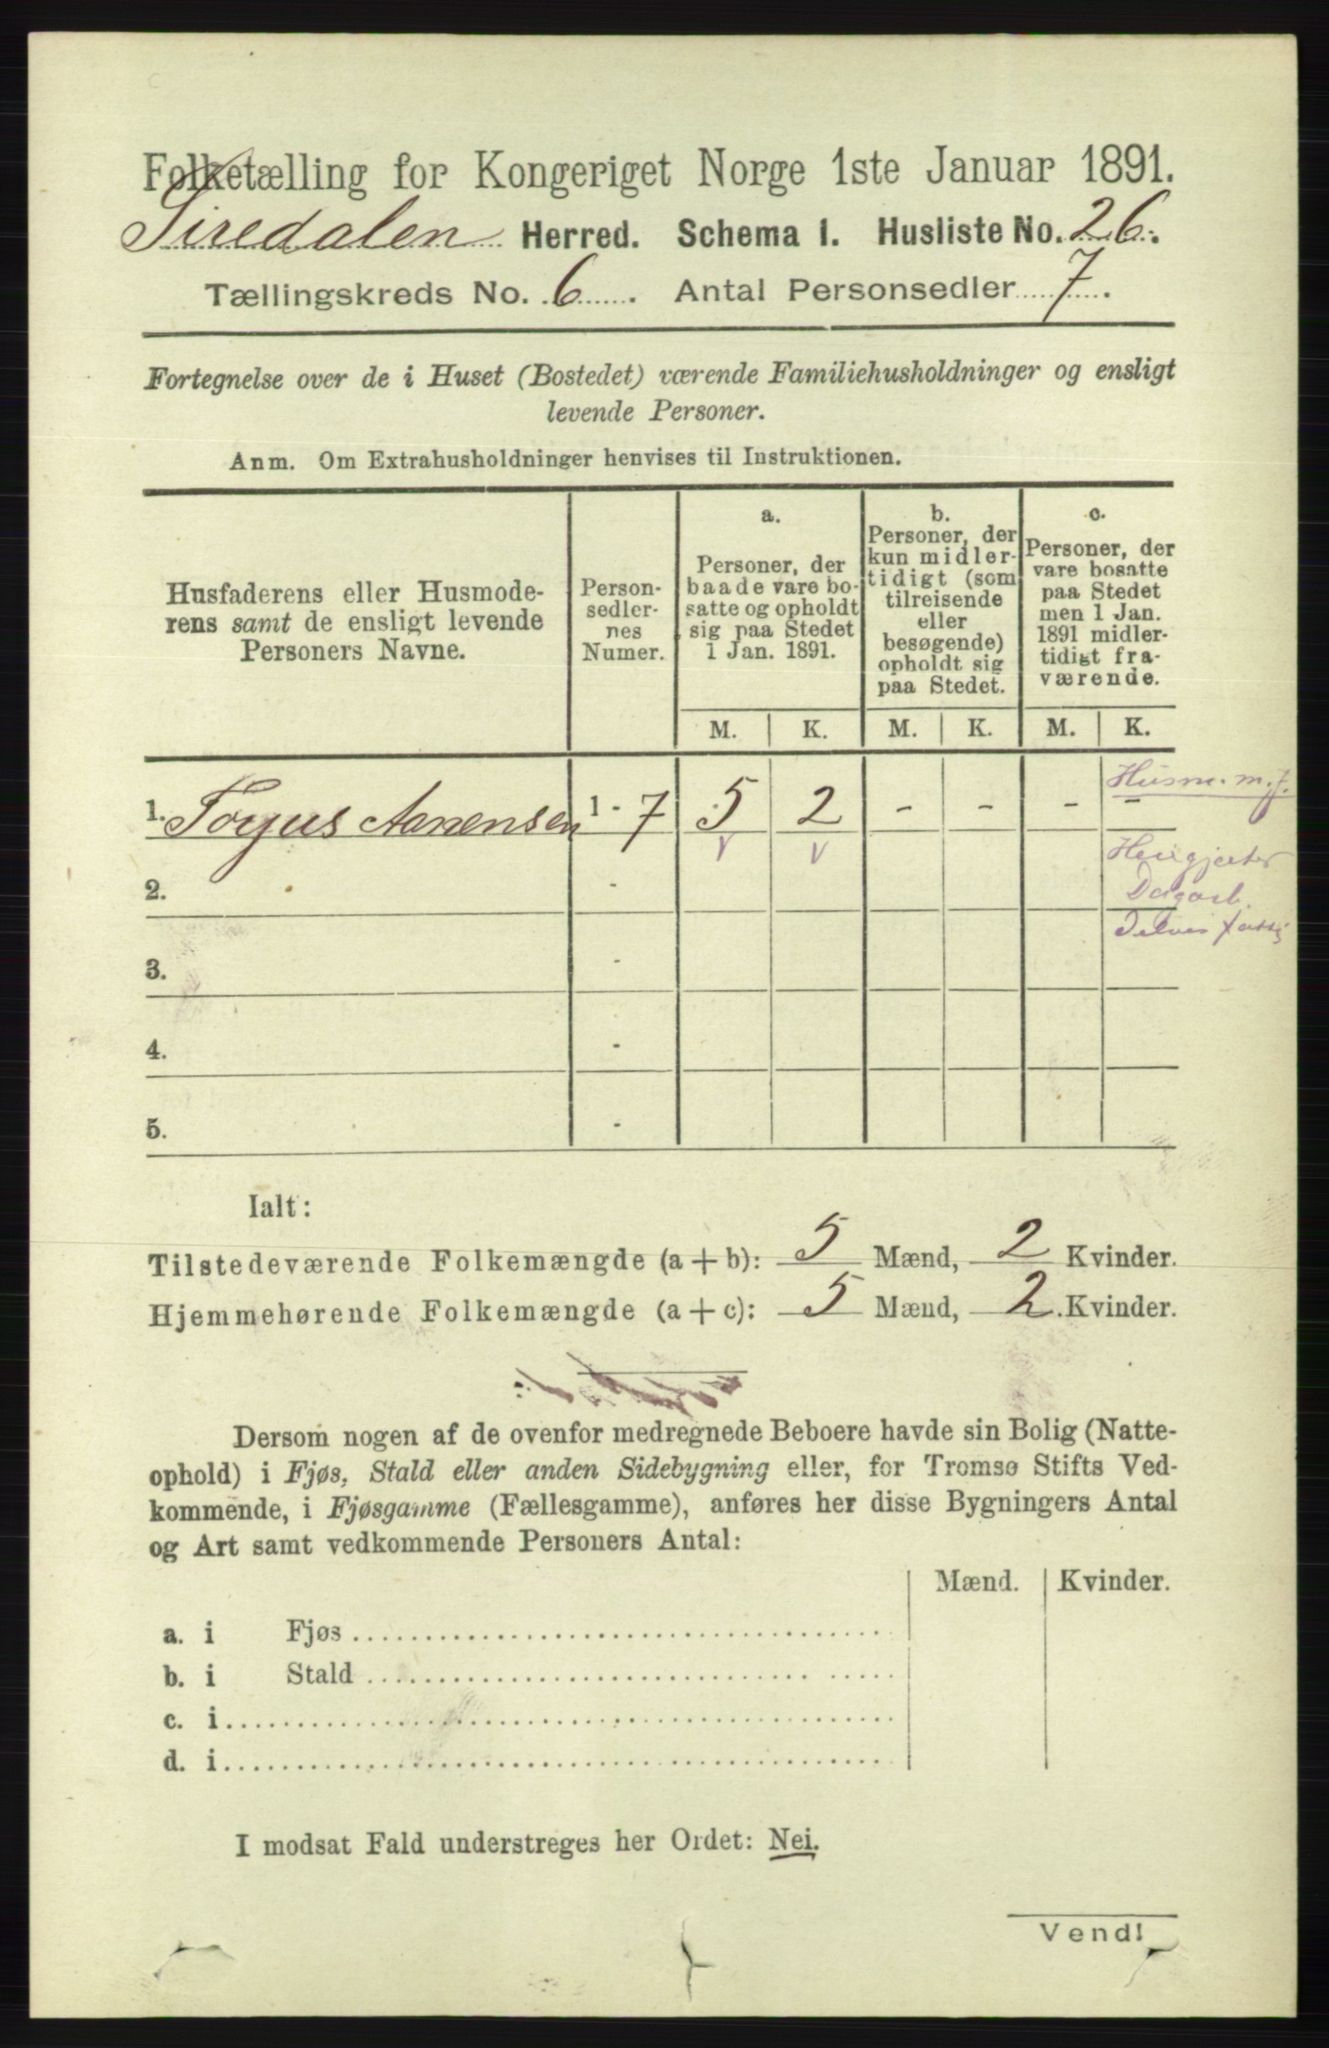 Folketælling for Kongeriget Norge 1ste Januar 1891.
Siredalen Herred. Schema 1. Husliste No. 26.
Tællingskreds No. 6. Antal Personsedler 7.
Fortegnelse over de i Huset (Bostedet) værende Familiehusholdninger og ensligt
levende Personer.
Anm. Om Extrahusholdninger henvises til Instruktionen.
Husfaderens eller Husmode-
rens samt de ensligt levende
Personers Navne.
Person-
sedler-
nes
Numer.
a.
Personer, der
baade vare bo-
satte og opholdt
sig paa Stedet
1 Jan. 1891.
b.
Personer, der
kun midler-
tidigt (som
tilreisende
eller
besøgende)
opholdt sig
paa Stedet.
c.
Personer, der
vare bosatte
paa Stedet
men 1 Jan.
1891 midler-
tidigt fra-
værende.
M. K. M. K. M. K.
Husm. m. J.
1. Torjus Aanensen 1 - 7 5 2 - - - -
2. -
Dagarb.
3. -
4. -
5. -
Ialt:
Tilstedeværende Folkemængde (a + b): 5 Mænd, 2 Kvinder.
Hjemmehørende Folkemængde (a + c): 5 Mænd, 2 Kvinder.
Dersom nogen af de ovenfor medregnede Beboere havde sin Bolig (Natte-
ophold) i Fjøs, Stald eller anden Sidebygning eller, for Tromsø Stifts Ved-
kommende, i Fjøsgamme (Fællesgamme), anføres her disse Bygningers Antal
og Art samt vedkommende Personers Antal:
Mænd. Kvinder.
a. i Fjøs
b. i Stald
c. i
d. i
I modsat Fald understreges her Ordet: Nei.
Vend!